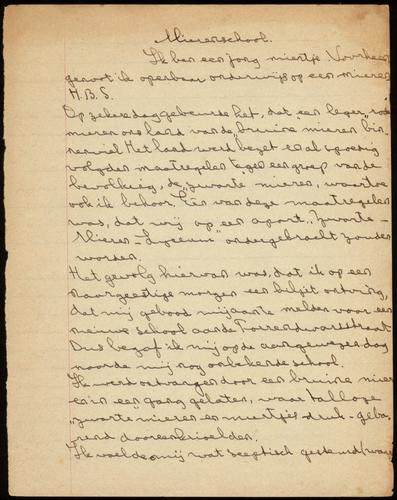 Mierenschool.
Ik ben een jong miertje. Voorheen
genoot ik openbaar onderwijs op een mieren
H.B.S.
Op zekere dag gebeurde het, dat een leger "rode
mieren ons land van de "bruine" mieren bin-
nenviel. Het land werd bezet en al spoedig
volgden maatregelen tegen een groep van de
bevolking, de "zwarte mieren, waartoe
ook ik behoor. Eén van deze maatregelen
was, dat wij op een apart "Zwarte-
Mieren-Lyceum" ondergebracht zouden
worden.
Het gevolg hiervan was, dat ik op een
naargeestige morgen een biljet ontving,
dat mij gebood mij aan te melden voor een
nieuwe school aan de
Dus begaf ik mij op de aangewezen dag
naar de mij nog onbekende school.
Ik werd ontvangen door een bruine mier
en in een gang gelaten, waar talloze
"zwarte mieren en miertjes druk-geba-
rend dooreenkrioelden.
Ik voelde mij wat sceptisch gestemd (want